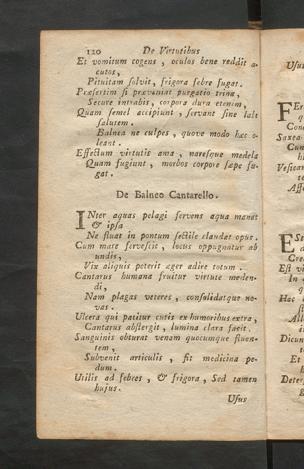 120 De Virtutibus
Et vomitum cogens , oculos bene reddit a-
cutos,
Pituitam solvit, frigora febre fugat.
Præsertim si præveniat purgatio trina,
Secure intrabis, corpora dura etenim,
Quam semel accipiunt, servant sine labe
salutem.
Balnea ne culpes , quove modo hæc o-
leant.
Effectum virtutis ama , naresque medela
Quam fugiunt , morbos corpore sæpe fu-
gat.
De Balneo Cantarello.
INter aquas pelagi fervens aqua manat
& ipsa
Ne fluat in pontum sectile claudat opus.
Cum mare fervescit , locus oppugnatur ab
undis,
Vix aliquis poterit æger adire totum.
Cantarus humana fruitur virtute meden-
di,
Nam plagas veteres , consolidatque no-
vas.
Ulcera qui patitur cutis ex humoribus extra,
Cantarus abstergit, lumina clara facit.
Sanguinis obturat venam quocumque fluen-
tem,
Subvenit articulis , fit medicina pe-
dum.
Utilis ad febres , & frigora , Sed tamen
hujus.
Usus
Usus
FEr